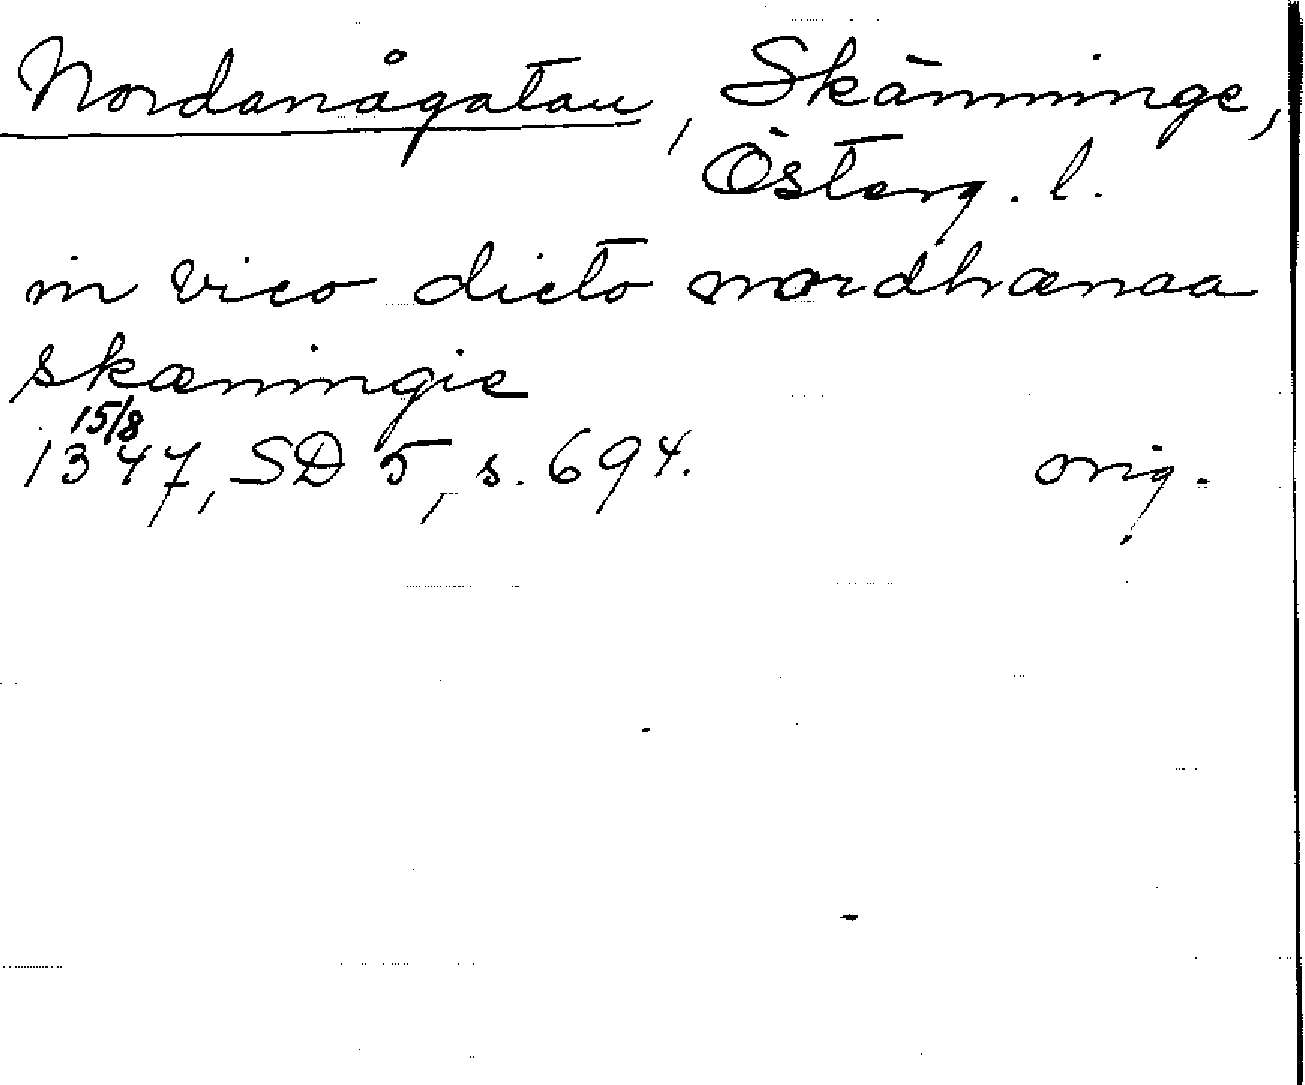 Nordanågatan, Skänninge,
Österg. l.
in vico dicto nordhanaa
skæningie
15/8
1347, SD 5, s. 694. orig.